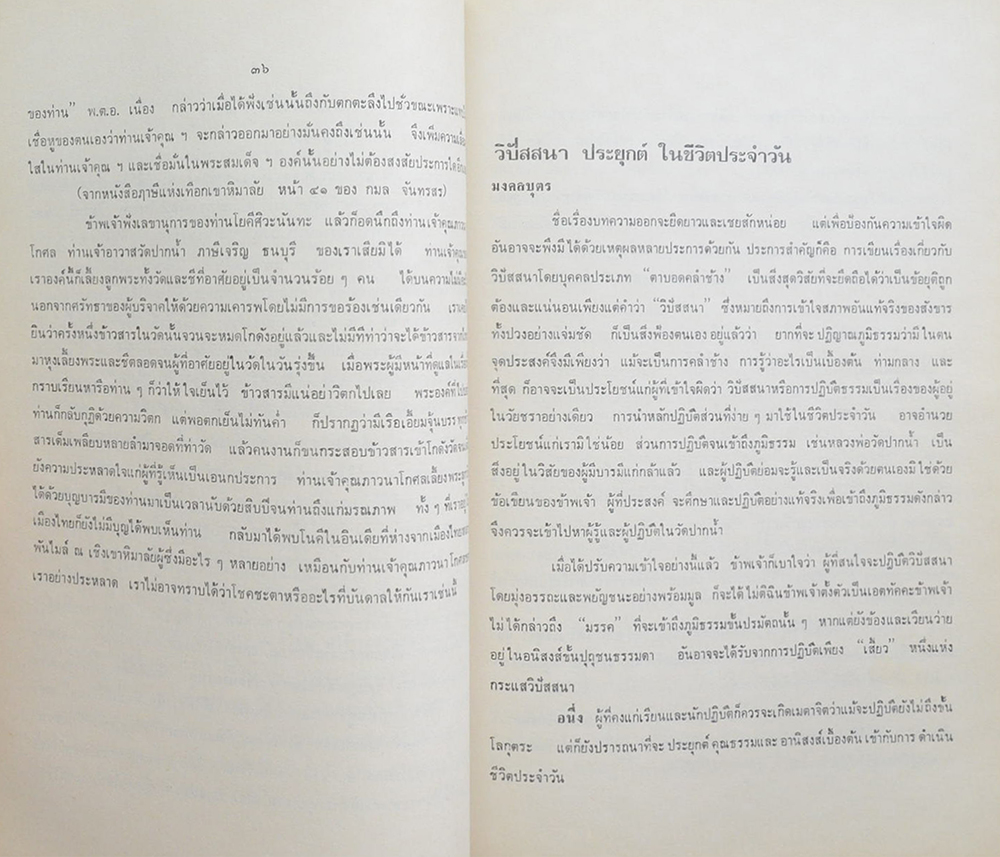 ๓๖
ของท่าน" พ.ต.อ. เนื่อง กล่าวว่าเมื่อได้ฟังเช่นนั้นถึงกับตกตะลึงไปชั่วขณะเพราะแทบไม่
เชื่อหูของตนเองว่าท่านเจ้าคุณ ฯ จะกล่าวออกมาอย่างมั่นคงถึงเช่นนั้น จึงเพิ่มความเลื่อม
ใสในท่านเจ้าคุณ ฯ และเชื่อมั่นในพระสมเด็จ ฯ องค์นั้นอย่างไม่ต้องสงสัยประการใดอีก
(จากหนังสือฤาษีแห่งเทือกเขาหิมาลัย หน้า ๔๑ ของ กมล จันทรสร)
ข้าพเจ้าฟังเลขานุการของท่านโยคีศิวะนันทะ แล้วก็อดนึกถึงท่านเจ้าคุณภาวนา
โกศล ท่านเจ้าอาวาสวัดปากน้ำ ภาษีเจริญ ธนบุรี ของเราเสียมิได้ ท่านเจ้าคุณ
เราองค์นี้ก็เลี้ยงลูกพระทั้งวัดและชีที่อาศัยอยู่เป็นจำนวนร้อย ๆ คน ได้บนความไม่มีอะไร
นอกจากศรัทธาของผู้บริจาคให้ด้วยความเคารพโดยไม่มีการขอร้องเช่นเดียวกัน เราเคยได้
ยินว่าครั้งหนึ่งข้าวสารในวัดนั้นจวนจะหมดโกดังอยู่แล้วและไม่มีทีท่าว่าจะได้ข้าวสารจากไหน
มาหุงเลี้ยงพระและชีตลอดจนผู้ที่อาศัยอยู่ในวัดในวันรุ่งขึ้น เมื่อพระผู้มีหน้าที่ดูแลในเรื่อง
กราบเรียนหารือท่าน ๆ ก็ว่าให้ใจเย็นไว้ ข้าวสารมีแน่อย่าวิตกไปเลย พระองค์ที่ไปบอก
ท่านก็กลับกุฏิด้วยความวิตก แต่พอตกเย็นไม่ทันค่ำ ก็ปรากฏว่ามีเรือเอี้ยมจุ้นบรรทุกข้าว
สารเต็มเพลียบหลายลำมาจอดที่ท่าวัด แล้วคนงานก็ขนกระสอบข้าวสารเข้าโกดังวัดจน
ยังความประหลาดใจแก่ผู้ที่รู้เห็นเป็นเอนกประการ ท่านเจ้าคุณภาวนาโกศลเลี้ยงพระลูก
ได้ด้วยบุญบารมีของท่านมาเป็นเวลานับด้วยสิบปีจนท่านถึงแก่มรณภาพ ทั้ง ๆ ที่เราอยู่
เมืองไทยก็ยังไม่มีบุญได้พบเห็นท่าน กลับมาได้พบโยคีในอินเดียที่ห่างจากเมืองไทยหลาย
พันไมล์ ณ เชิงเขาหิมาลัยผู้ซึ่งมีอะไร ๆ หลายอย่าง เหมือนกับท่านเจ้าคุณภาวนาโกศล
เราอย่างประหลาด เราไม่อาจทราบได้ว่าโชคชะตาหรืออะไรที่บันดาลให้กันเราเช่นนี้
วิปัสสนา ประยุกต์ ในชีวิตประจำวัน
มงคลบุตร
ชื่อเรื่องบทความออกจะยืดยาวและเชยสักหน่อย แต่เพื่อป้องกันความเข้าใจผิด
อันอาจจะพึงมีได้ด้วยเหตุผลหลายประการด้วยกัน ประการสำคัญก็คือ การเขียนเรื่องเกี่ยวกับ
วิปัสสนาโดยบุคคลประเภท "ตาบอดคลำช้าง" เป็นสิ่งสุดวิสัยที่จะยึดถือได้ว่าเป็นข้อยุติถูก
ต้องและแน่นอนเพียงแต่คำว่า "วิปัสสนา" ซึ่งหมายถึงการเข้าใจสภาพอันแท้จริงของสังขาร
ทั้งปวงอย่างแจ่มชัด ก็เป็นสิ่งฟ้องตนเองอยู่แล้วว่า ยากที่จะปฏิญาณภูมิธรรมว่ามีในตน
จุดประสงค์จึงมีเพียงว่า แม้จะเป็นการคลำช้าง การรู้ว่าอะไรเป็นเบื้องต้น ท่ามกลาง และ
ที่สุด ก็อาจจะเป็นประโยชน์แก่ผู้ที่เข้าใจผิดว่า วิปัสสนาหรือการปฏิบัติธรรมเป็นเรื่องของผู้อยู่
ในวัยชราอย่างเดียว การนำหลักปฏิบัติส่วนที่ง่าย ๆ มาใช้ในชีวิตประจำวัน อาจอำนวย
ประโยชน์แก่เรามิใช่น้อย ส่วนการปฏิบัติจนเข้าถึงภูมิธรรม เช่นหลวงพ่อวัดปากน้ำ เป็น
สิ่งอยู่ในวิสัยของผู้มีบารมีแก่กล้าแล้ว และผู้ปฏิบัติย่อมจะรู้และเป็นจริงด้วยตนเองมิใช่ด้วย
ข้อเขียนของข้าพเจ้า ผู้ที่ประสงค์ จะศึกษาและปฏิบัติอย่างแท้จริงเพื่อเข้าถึงภูมิธรรมดังกล่าว
จึงควรจะเข้าไปหาผู้รู้และผู้ปฏิบัติในวัดปากน้ำ
เมื่อได้ปรับความเข้าใจอย่างนี้แล้ว ข้าพเจ้าก็เบาใจว่า ผู้ที่สนใจจะปฏิบัติวิปัสสนา
โดยมุ่งอรรถะและพยัญชนะอย่างพร้อมมูล ก็จะได้ไม่ติฉินข้าพเจ้าตั้งตัวเป็นเอตทัคคะข้าพเจ้า
ไม่ได้กล่าวถึง "มรรค" ที่จะเข้าถึงภูมิธรรมขั้นปรมัตถนั้น ๆ หากแต่ยังข้องและเวียนว่าย
อยู่ในอนิสงส์ขั้นปุถุชนธรรมดา อันอาจจะได้รับจากการปฏิบัติเพียง "เสี้ยว" หนึ่งแห่ง
กระแสวิปัสสนา
อนึ่ง ผู้ที่คงแก่เรียนและนักปฏิบัติก็ควรจะเกิดเมตาจิตว่าแม้จะปฏิบัติยังไม่ถึงขั้น
โลกุตระ แต่ก็ยังปรารถนาที่จะ ประยุกต์ คุณธรรมและ อานิสงส์เบื้องต้น เข้ากับการ ดำเนิน
ชีวิตประจำวัน